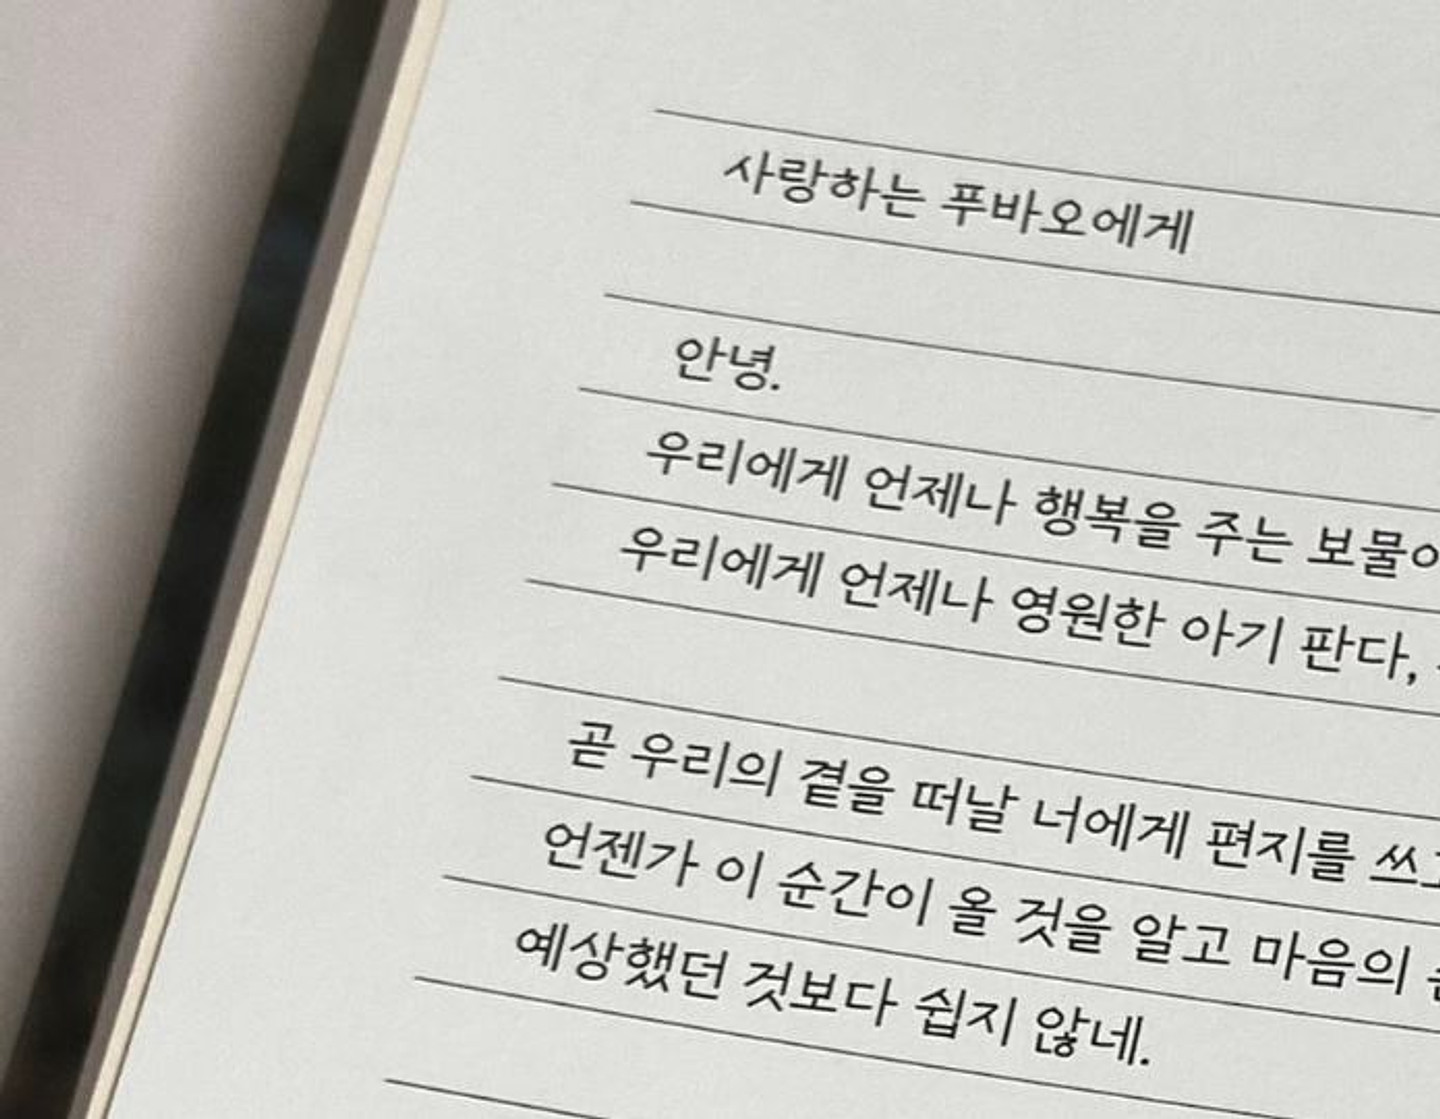 사랑하는 푸바오에게
안녕.
우리에게 언제나 행복을 주는
우리에게 언제나 영원한 아기 판다,
곧 우리의 곁을 떠날 너에게 편지를
언젠가 이 순간이 올 것을 알고 마음의
예상했던 것보다 쉽지 않네.